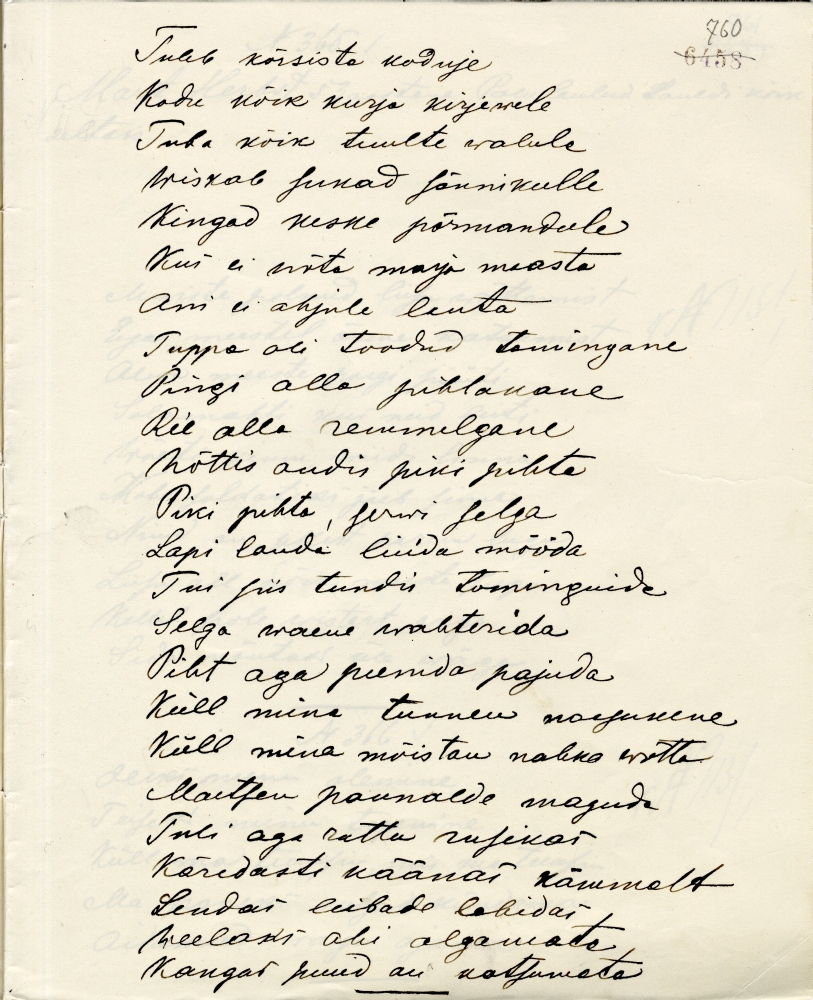 760
6458
Tuleb kõrsista koduje
Kodu kõik kurja kirjewele
Tuba kõik tuulte walule
Wiskab sukad sõnnikulle
Kingad keske põrmandule
Kui ei wõta marja maasta
Ani ei ahjule lauta
Tuppa oli toodud toomingane
Pingi alla pihlakane
Rie alla remmelgane
Wõttis andis piki pihta
Piki pihta, serwi selga
Lapi lauda liuda mööda
Tui siis tundis toominguida
Selga waene wahterida
Piht aga peenida pajuda
Küll mina tunnen naesukene
Küll mina mõistan nahka wõtta
Maitsen paunalde maguda
Tuli aga rattu rusikas
Käredasti käänas kämmalt
Lendas leibade labidas
Weelaks ahi algamata
Kangas puud on katsumata